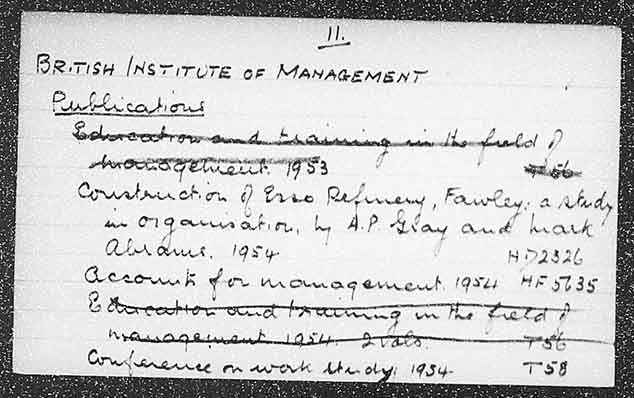 11.
BRITISH INSTITUTE OF MANAGEMENT
Publications
Education and training in the field of
management. 1953 T 56
Construction of Esso Refinery, Fawley: a study
in organisation, by A.P. Gray and Mark
Abrams. 1954 HD2326
Accounts for management. 1954 HF5635
Education and training in the field of
management. 1954. 2 vols. T56
Conference on work study. 1954. T58